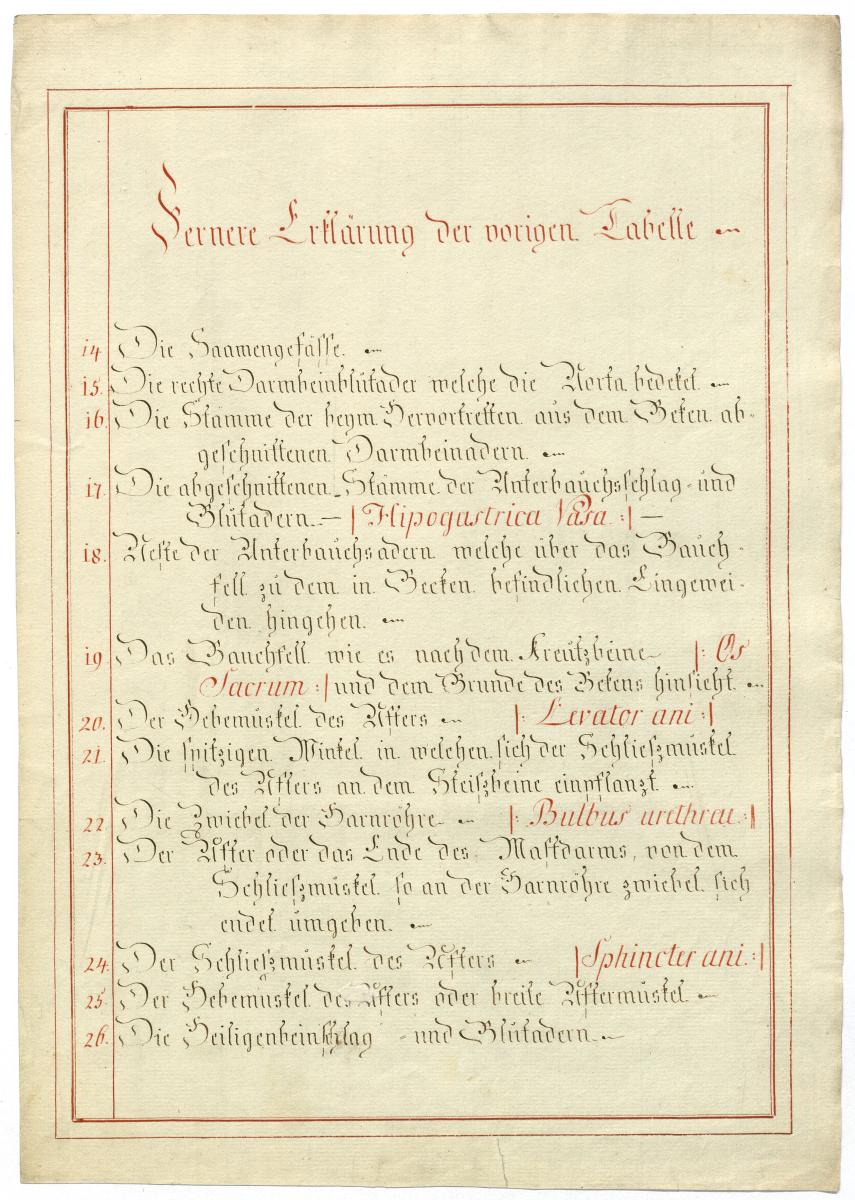 Fernere Erklärung der vorigen Tabelle
14 Die Saamengefässe.
15. Die rechte Darmbeinblutader welche die Aorta bedeket.
16. Die Stämme der beym Hervortretten aus dem Beken ab-
geschnittenen Darmbeinadern.
17. Die abgeschnittenen Stämme der Unterbauchsschlag- und
Blutadern — |: Hipogastrica Vasa :| —
18. Aeste der Unterbauchsadern welche über das Bauch-
fell zu dem in Becken befindlichen Eingewei-
den hingehen.
19 Das Bauchfell wie es nach dem Kreutzbeine |: Os
Sacrum :| und dem Grunde des Bekens hinsieht.
20. Der Hebemuskel des Afters |: Levator ani :|
21. Die spitzigen Winkel in welchen sich der Schlieszmuskel
des Afters an dem Steiszbeine einpflanzt.
22 Die Zwiebel der Harnröhre |: Bulbus urethrae :|
23. Der After oder das Ende des Mastdarms, von dem
Schlieszmuskel so an der Harnröhre zwiebel sich
endet umgeben.
24. Der Schlieszmuskel des Afters |: Sphincter ani :|
25. Der Hebemuskel des Afters oder breite Aftermuskel.
26. Die Heiligenbeinschlag - und Blutadern.